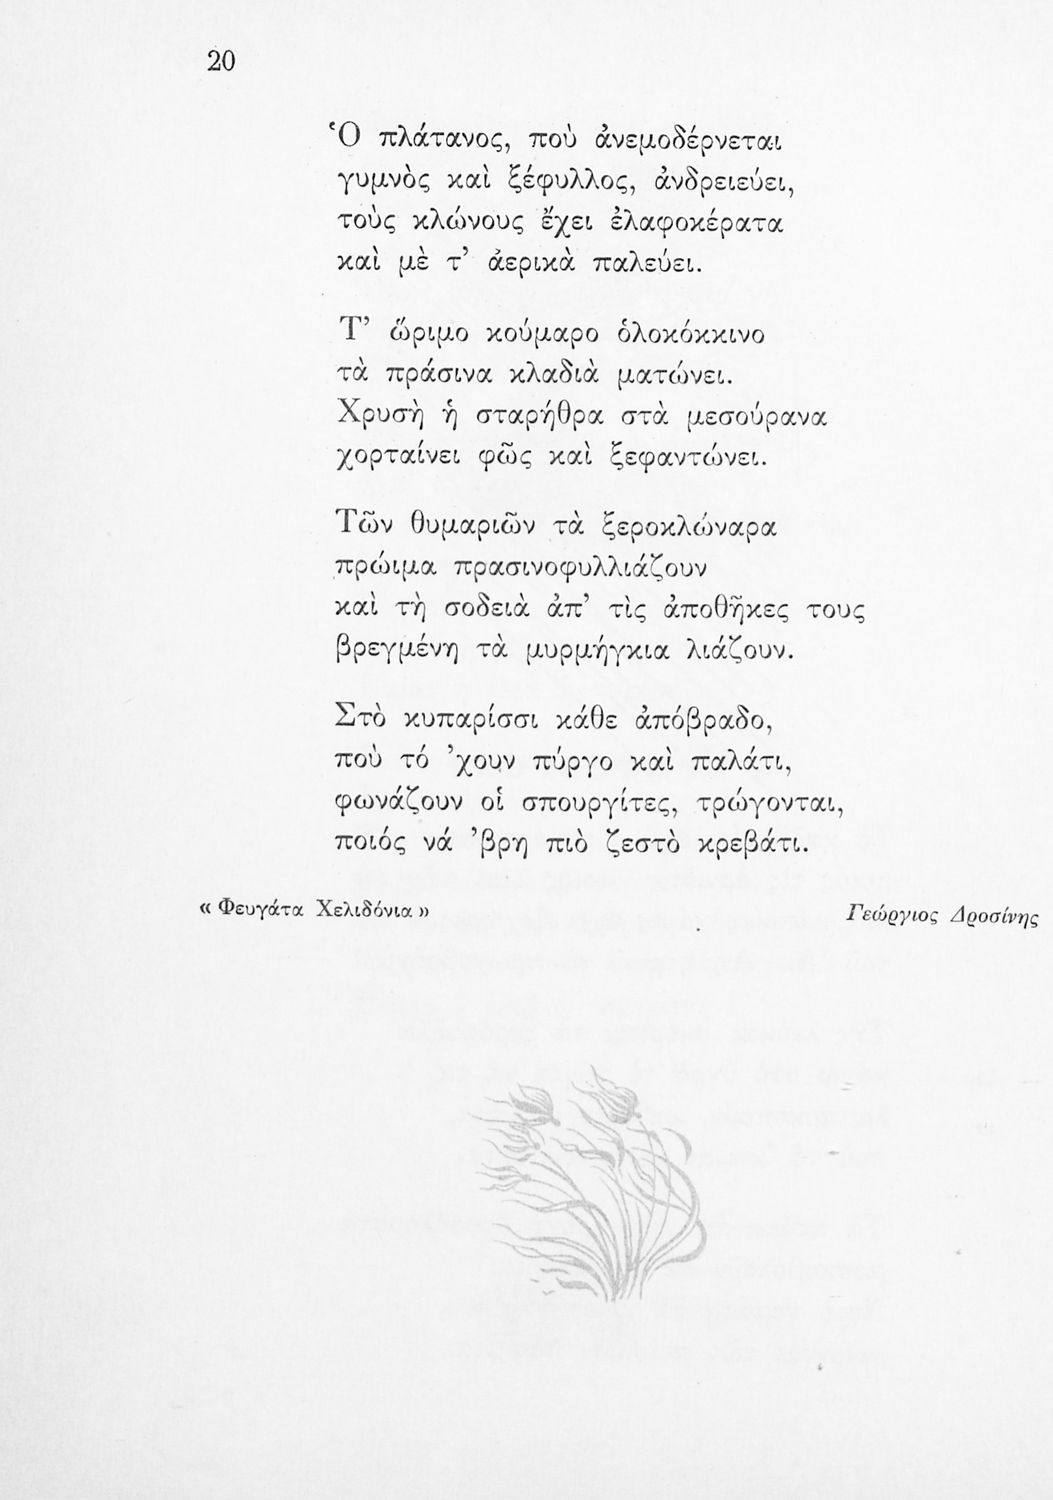 20
Ὁ πλάτανος, ποὺ ἀνεμοδέρνεται
γυμνὸς καὶ ξέφυλλος, ἀνδρειεύει,
τοὺς κλώνους ἔχει ἐλαφοκέρατα
καὶ μὲ τ’ ἀερικὰ παλεύει.
Τ’ ὥριμο κούμαρο ὁλοκόκκινο
τὰ πράσινα κλαδιὰ ματώνει.
Χρυσὴ ἡ σταρήθρα στὰ μεσούρανα
χορταίνει φῶς καὶ ξεφαντώνει.
Τῶν θυμαριῶν τὰ ξεροκλώναρα
πρώιμα πρασινοφυλλιάζουν
καὶ τὴ σοδειὰ ἀπ’ τὶς ἀποθῆκες τους
βρεγμένη τὰ μυρμήγκια λιάζουν.
Στὸ κυπαρίσσι κάθε ἀπόβραδο,
ποὺ τό ’χουν πύργο καὶ παλάτι,
φωνάζουν οἱ σπουργίτες, τρώγονται,
ποιός νά ’βρη πιὸ ζεστὸ κρεβάτι.
« Φευγάτα Χελιδόνια »
Γεώργιος Δροσίνης